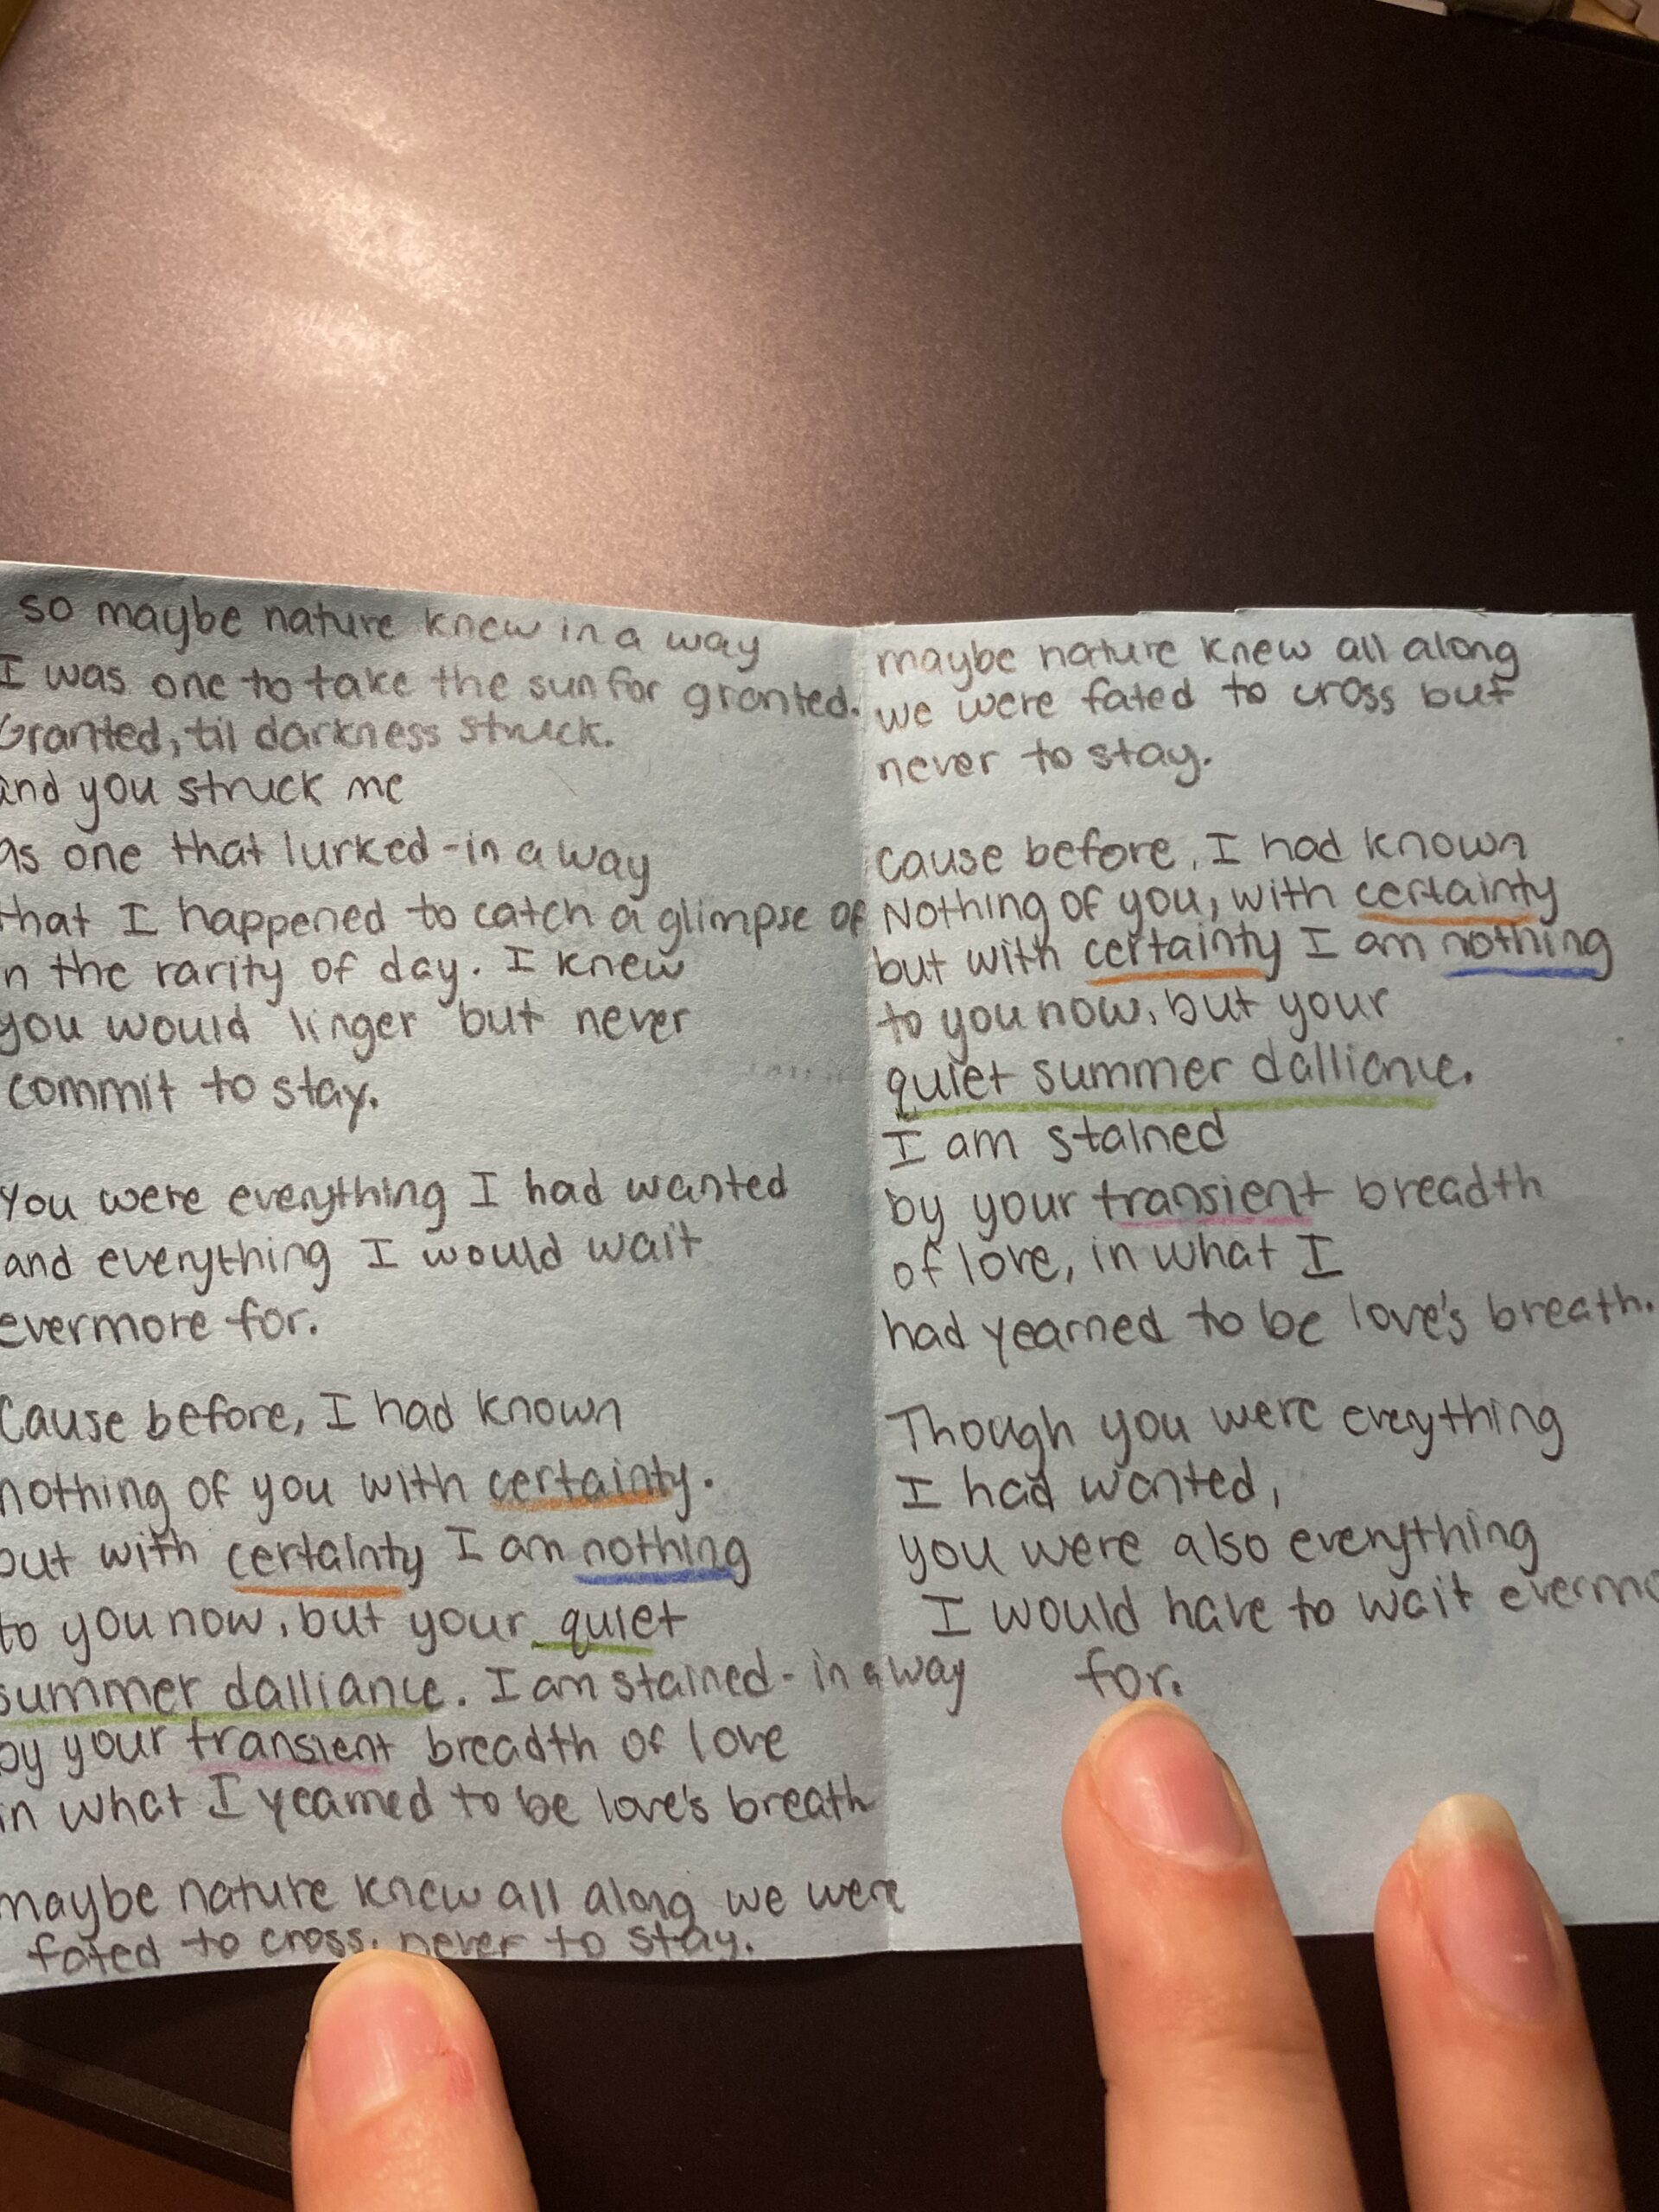 so maybe nature knew in a way
I was one to take the sun for granted.
Granted, til darkness struck.
and you struck me
as one that lurked - in a way
that I happened to catch a glimpse of
in the rarity of day. I knew
you would linger but never
commit to stay.
You were everything I had wanted
and everything I would wait
evermore for.
Cause before, I had known
nothing of you with certainty.
but with certainty I am nothing
to you now, but your quiet
summer dalliance. I am stained - in a way
by your transient breadth of love
in what I yearned to be love's breath
maybe nature knew all along we were
fated to cross, never to stay.
maybe nature knew all along
we were fated to cross but
never to stay.
Cause before, I had known
Nothing of you, with certainty
but with certainty I am nothing
to you now, but your
quiet summer dalliance.
I am stained
by your transient breadth
of love, in what I
had yearned to be love's breath.
Though you were everything
I had wanted,
you were also everything
I would have to wait evermo
for.